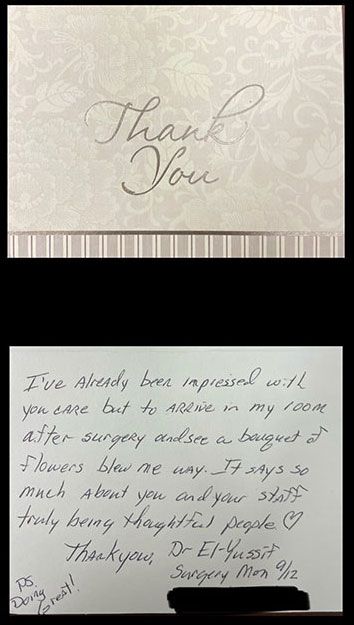 Thank
You
I've Already been impressed with
you care but to ARRIVE in my room
after surgery and see a bouquet of
flowers blew me way. It says so
much About you and your staff
truly being thoughtful people ♡
Thank you, Dr El-Yussif
Surgery Mon 9/12
PS.
Doing
Great!